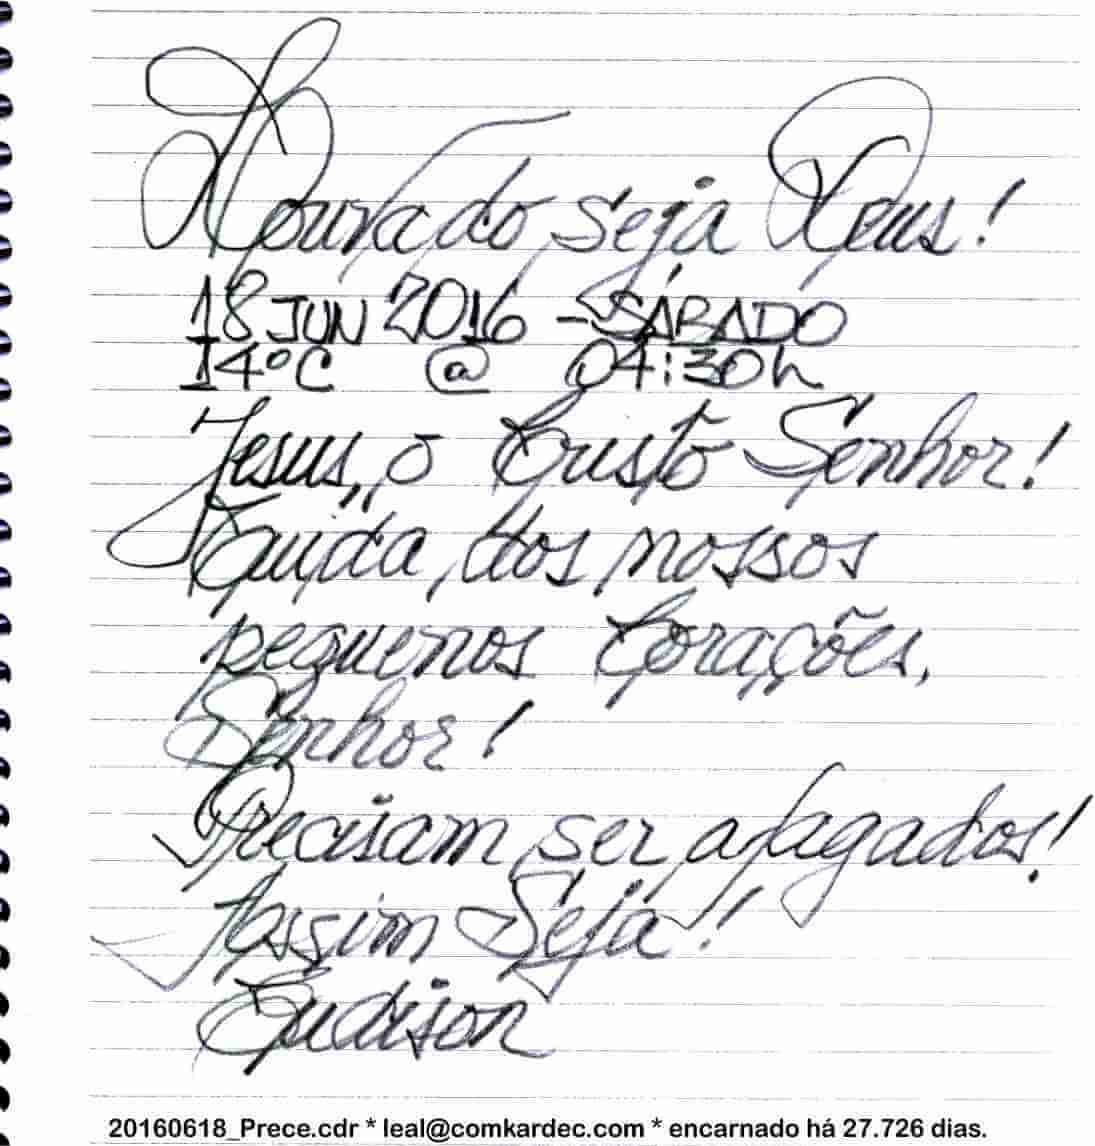 Louvado seja Deus!
18 JUN 2016 - SÁBADO
14°C @ 04:30h
Jesus, o Cristo Senhor!
Cuida dos nossos
pequenos Corações,
Senhor!
Precisam ser afagados!
Assim Seja!
20160618_Prece.cdr * leal@comkardec.com * encarnado há 27.726 dias.